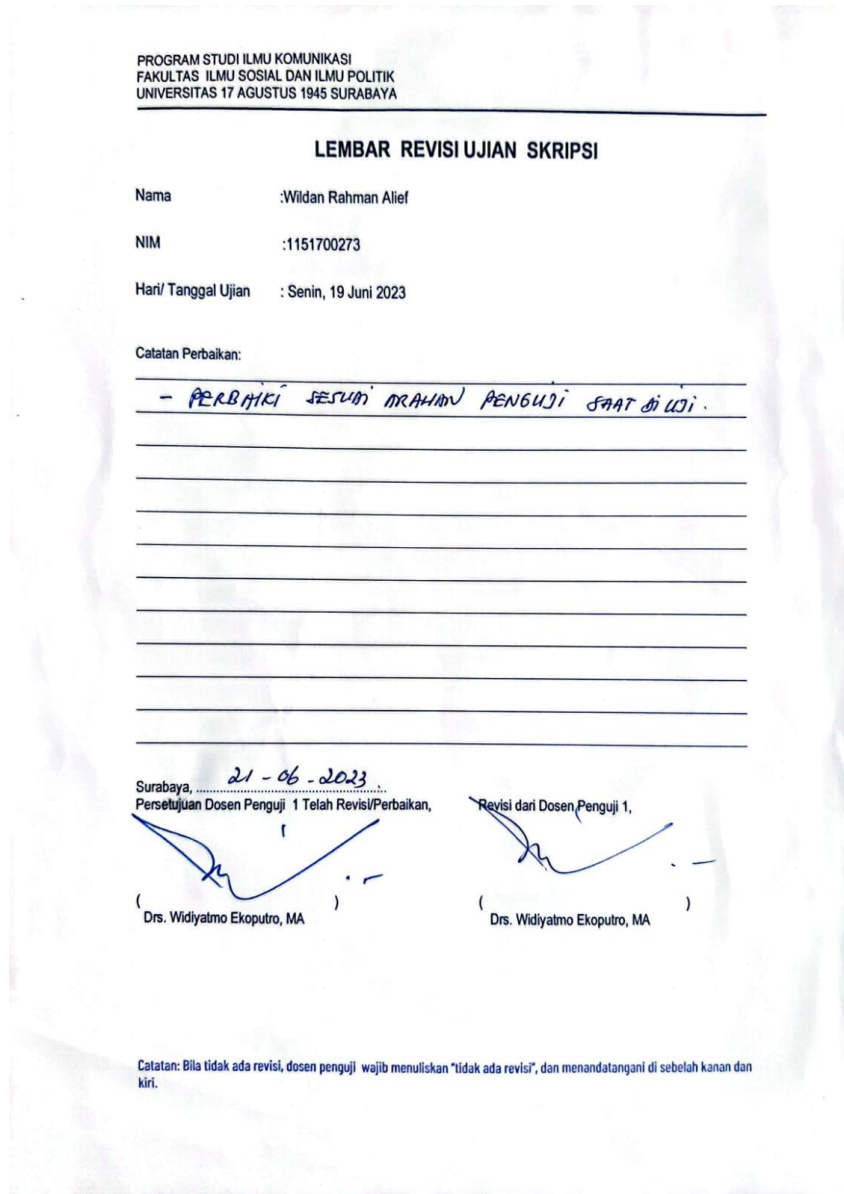 PROGRAM STUDI ILMU KOMUNIKASI
FAKULTAS ILMU SOSIAL DAN ILMU POLITIK
UNIVERSITAS 17 AGUSTUS 1945 SURABAYA
LEMBAR REVISI UJIAN SKRIPSI
Nama :Wildan Rahman Alief
NIM :1151700273
Hari/ Tanggal Ujian : Senin, 19 Juni 2023
Catatan Perbaikan:
- PERBAIKI SESUAI ARAHAN PENGUJI SAAT DI UJI.
Surabaya, 21 - 06 - 2023
Persetujuan Dosen Penguji 1 Telah Revisi/Perbaikan, Revisi dari Dosen Penguji 1,
( ) ( )
Drs. Widiyatmo Ekoputro, MA Drs. Widiyatmo Ekoputro, MA
Catatan: Bila tidak ada revisi, dosen penguji wajib menuliskan "tidak ada revisi", dan menandatangani di sebelah kanan dan
kiri.